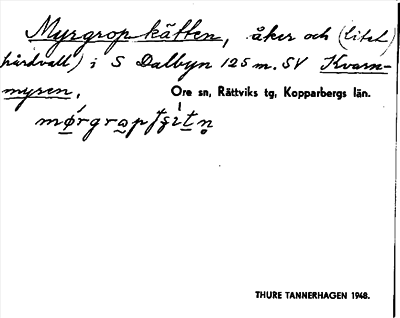 Myrgropkätten, åker och (litet)
hårdvall) i S Dalbyn 125 m. SV Kvarn-
myren. Ore sn, Rättviks tg, Kopparbergs län.
THURE TANNERHAGEN 1948.